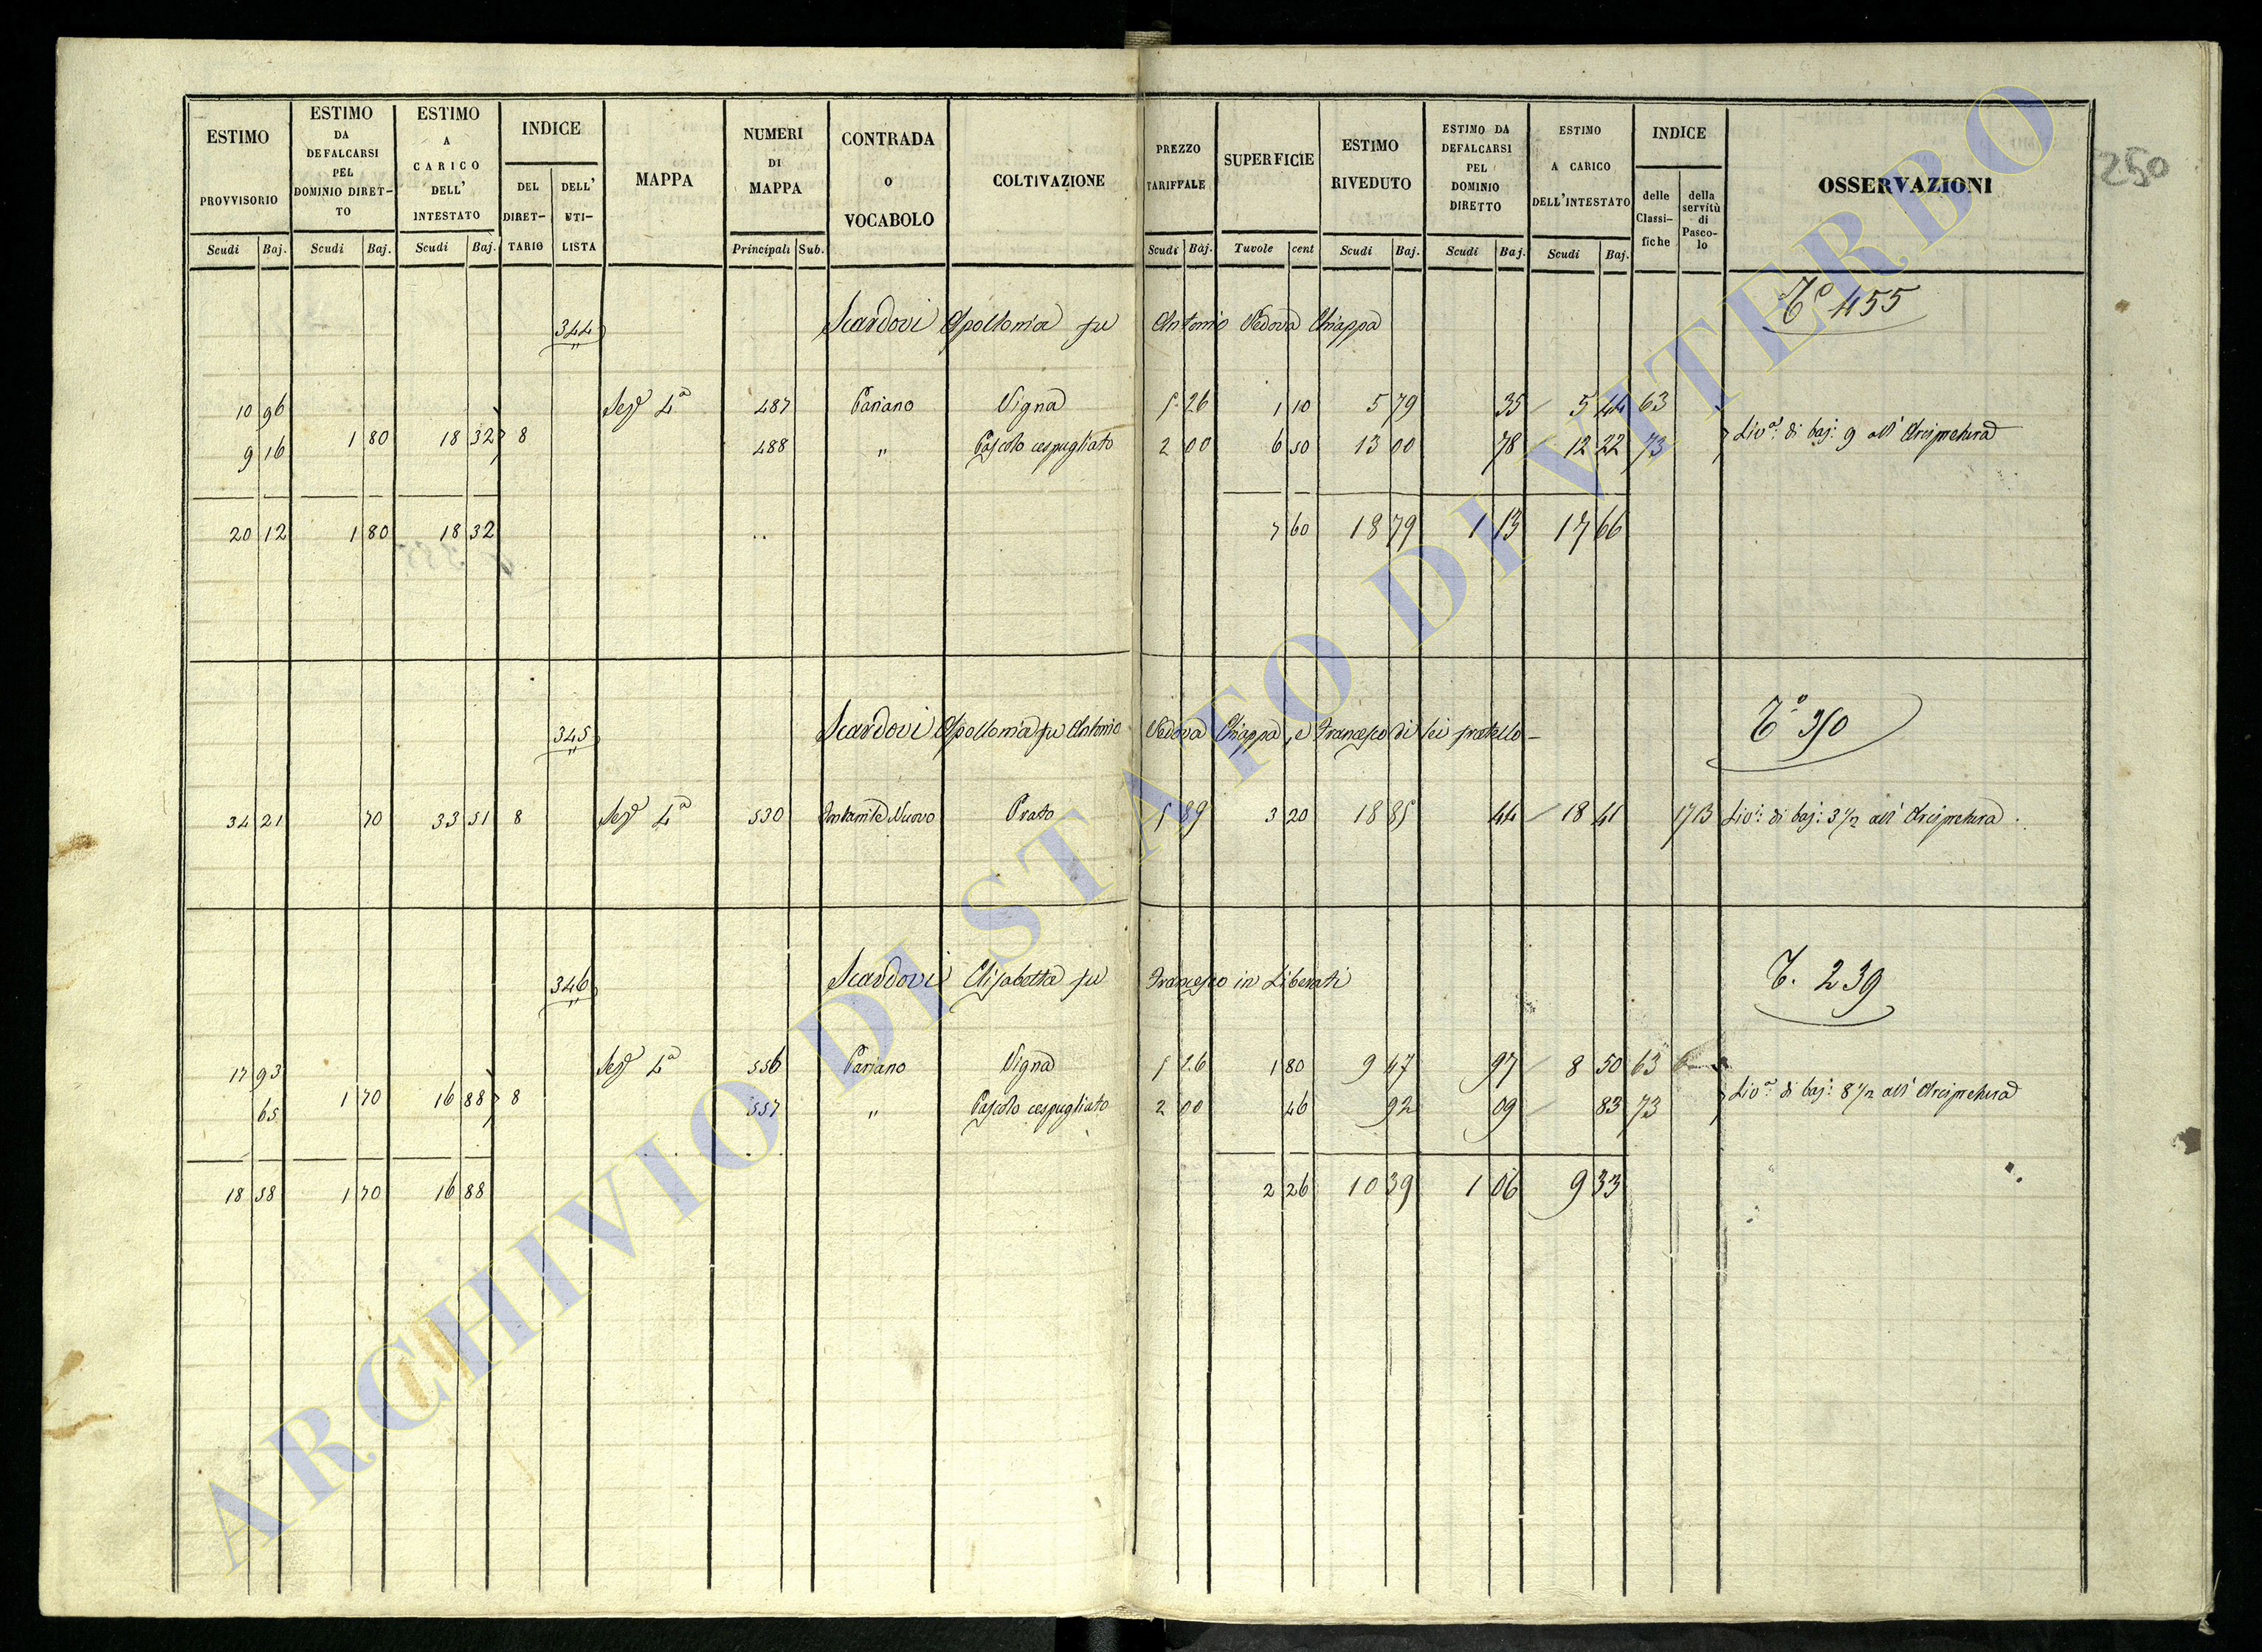 ESTIMO PROVVISORIO
ESTIMO DA DEFALCARSI PEL DOMINIO DIRETTO
ESTIMO A CARICO DELL' INTESTATO
INDICE
DEL DIRETTARIO
DELL' UTILISTA
MAPPA
NUMERI DI MAPPA
CONTRADA O VOCABOLO
COLTIVAZIONE
PREZZO TARIFFALE
SUPERFICIE
ESTIMO RIVEDUTO
ESTIMO DA DEFALCARSI PEL DOMINIO DIRETTO
ESTIMO A CARICO DELL'INTESTATO
INDICE
delle Classifiche
della servitù di Pascolo
OSSERVAZIONI
250
Scudi Baj. Scudi Baj. Scudi Baj. Principali Sub. Scudi Baj. Tavole cent Scudi Baj. Scudi Baj. Scudi Baj.
344 Scardovi Apollonia fu Antonio Vedova Chiappa T.º 455
10 96 Sezº 4ª 487 Pariano Vigna 5 26 1 10 5 79 35 5 44 63
1 80 18 32 8 Livº: di baj: 9 all' Arcipretura
9 16 488 " Pascolo cespugliato 2 00 6 50 13 00 78 12 22 73
20 12 1 80 18 32 7 60 18 79 1 13 17 66
345 Scardovi Apollonia fu Antonio Vedova Chiappa, e Francesco di lei fratello T.º 350
34 21 70 33 51 8 Sezº 4ª 530 Nuovo Prato 5 89 3 20 18 85 44 18 41 17 13 Livº: di baj: 3 1/2 all' Arcipretura
346 Scardovi Elisabetta fu Francesco in Liberati T. 239
17 93 Sezº 4ª 556 Pariano Vigna 5 26 1 80 9 47 97 8 50 63
1 70 16 88 8 Livº: di baj: 8 1/2 all' Arcipretura
65 557 " Pascolo cespugliato 2 00 46 92 09 83 73
18 58 1 70 16 88 2 26 10 39 1 06 9 33
ARCHIVIO DI STATO DI VITERBO